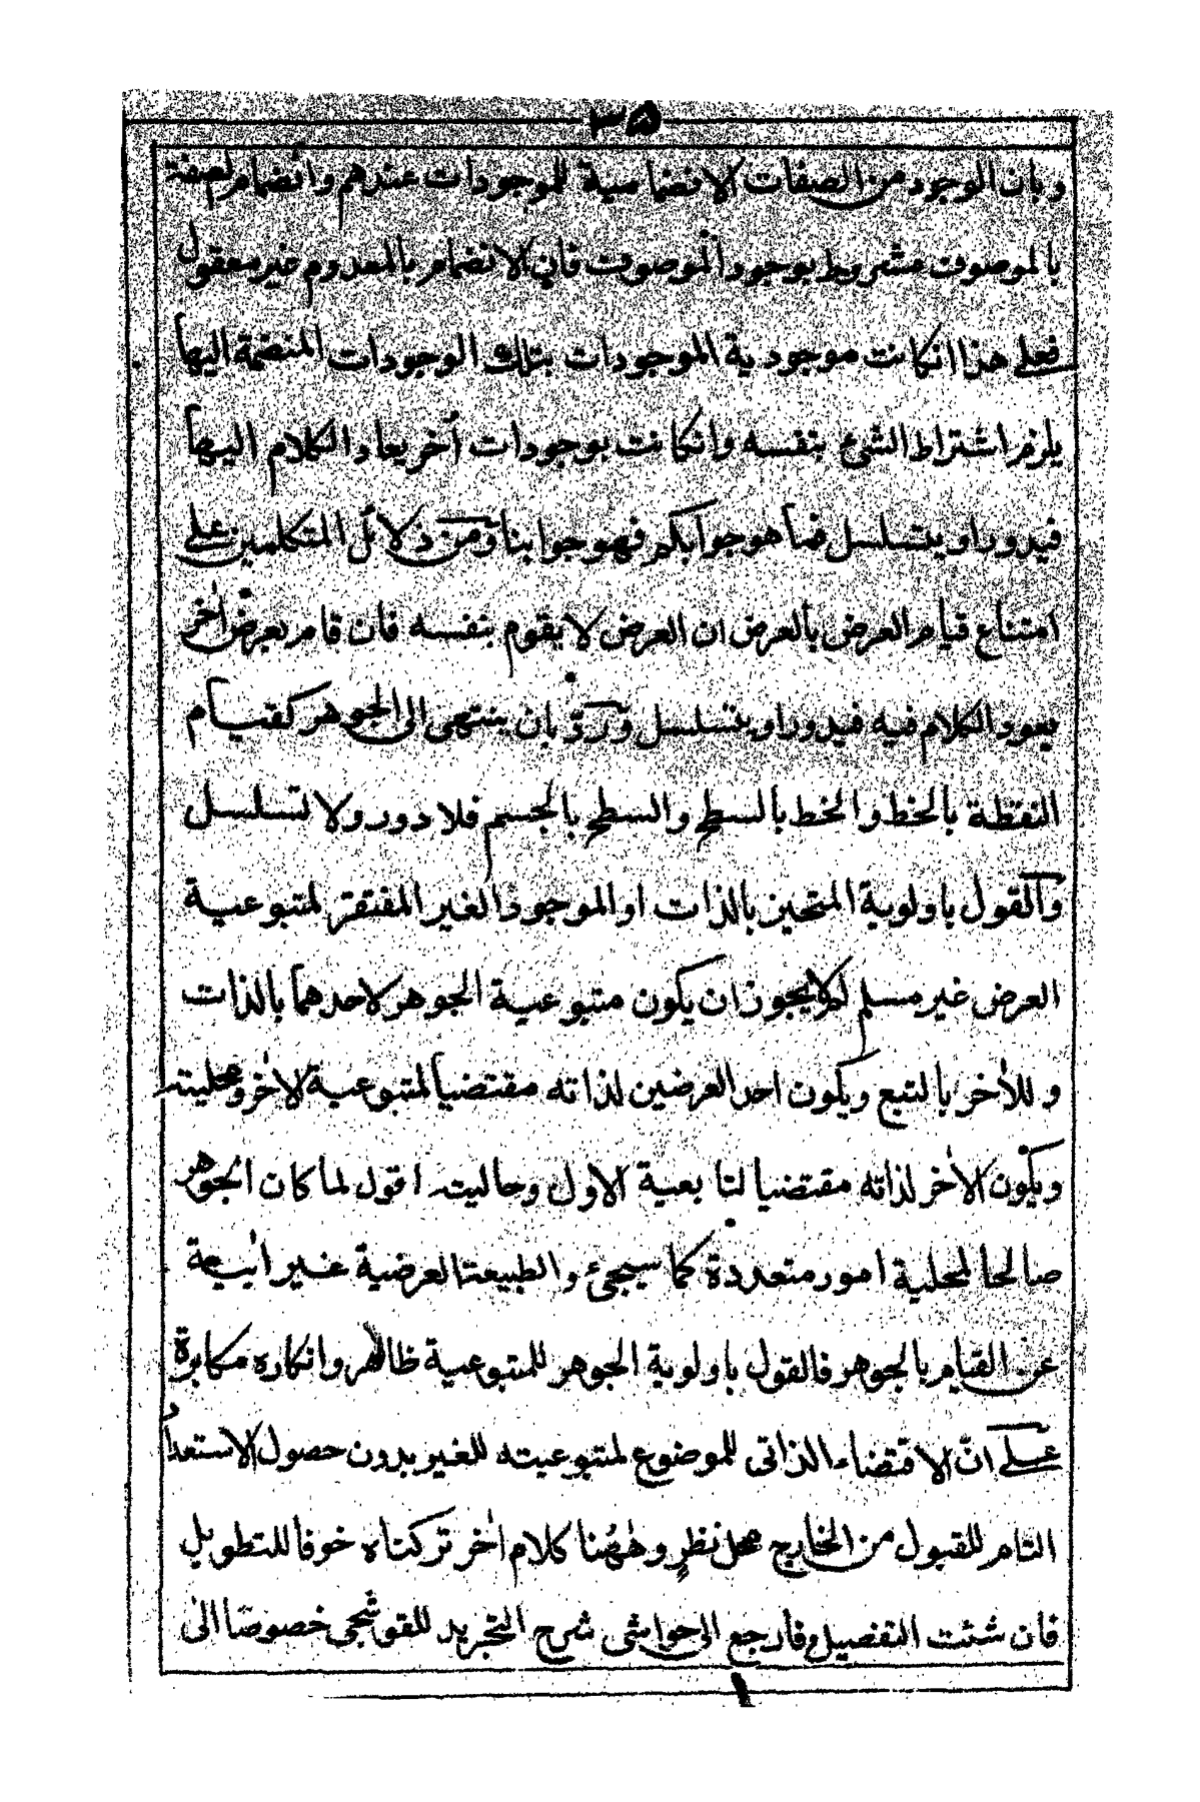 ٣٥
وبان الوجود من الصفات الانضمامية للموجودات عندهم وانضمام الصفة
بالموصوف مشروط بوجود الموصوف فان الانضمام بالمعدوم غير معقول
فعلى هذا انكانت موجودية الموجودات بتلك الوجودات المنضمة اليها
يلزم اشتراط الشئ بنفسه وانكانت بوجودات أخر يعاد الكلام اليها
فيدور او يتسلسل فما هو جوابكم فهو جوابنا ومن دلائل المتكلمين على
امتناع قيام العرض بالعرض ان العرض لا يقوم بنفسه فان قام بعرض اٰخر
يعود الكلام فيه فيدور او يتسلسل ورد بان ينتهى الى الجوهر كقيام
النقطة بالخط والخط بالسطح والسطح بالجسم فلا دور ولا تسلسل
والقول باولوية المتحيز بالذات او الموجود الغير المفتقر لمتبوعية
العرض غير مسلم لم لا يجوز ان يكون متبوعية الجوهر لاحدهما بالذات
و للاٰخر بالتبع ويكون احد العرضين لذاته مقتضيا لمتبوعية الاٰخر ومحليته
ويكون الاٰخر لذاته مقتضيا لتابعية الاول وحاليته اقول لما كان الجوهر
صالحا لمحلية امور متعددة كما سيجئ والطبيعة العرضية غير اٰبية
عن القيام بالجوهر فالقول باولوية الجوهر للمتبوعية ظاهر وانكاره مكابرة
على انّ الاقتضاء الذاتى للموضوع لمتبوعيته للغير بدون حصول الاستعداد
التام للقبول من الخارج محل نظرٍ وهٰهُنا كلام اٰخر تركناه خوفا للتطويل
فان شئت التفصيل فارجع الى حواشى شرح التجريد للقوشجى خصوصًا الى